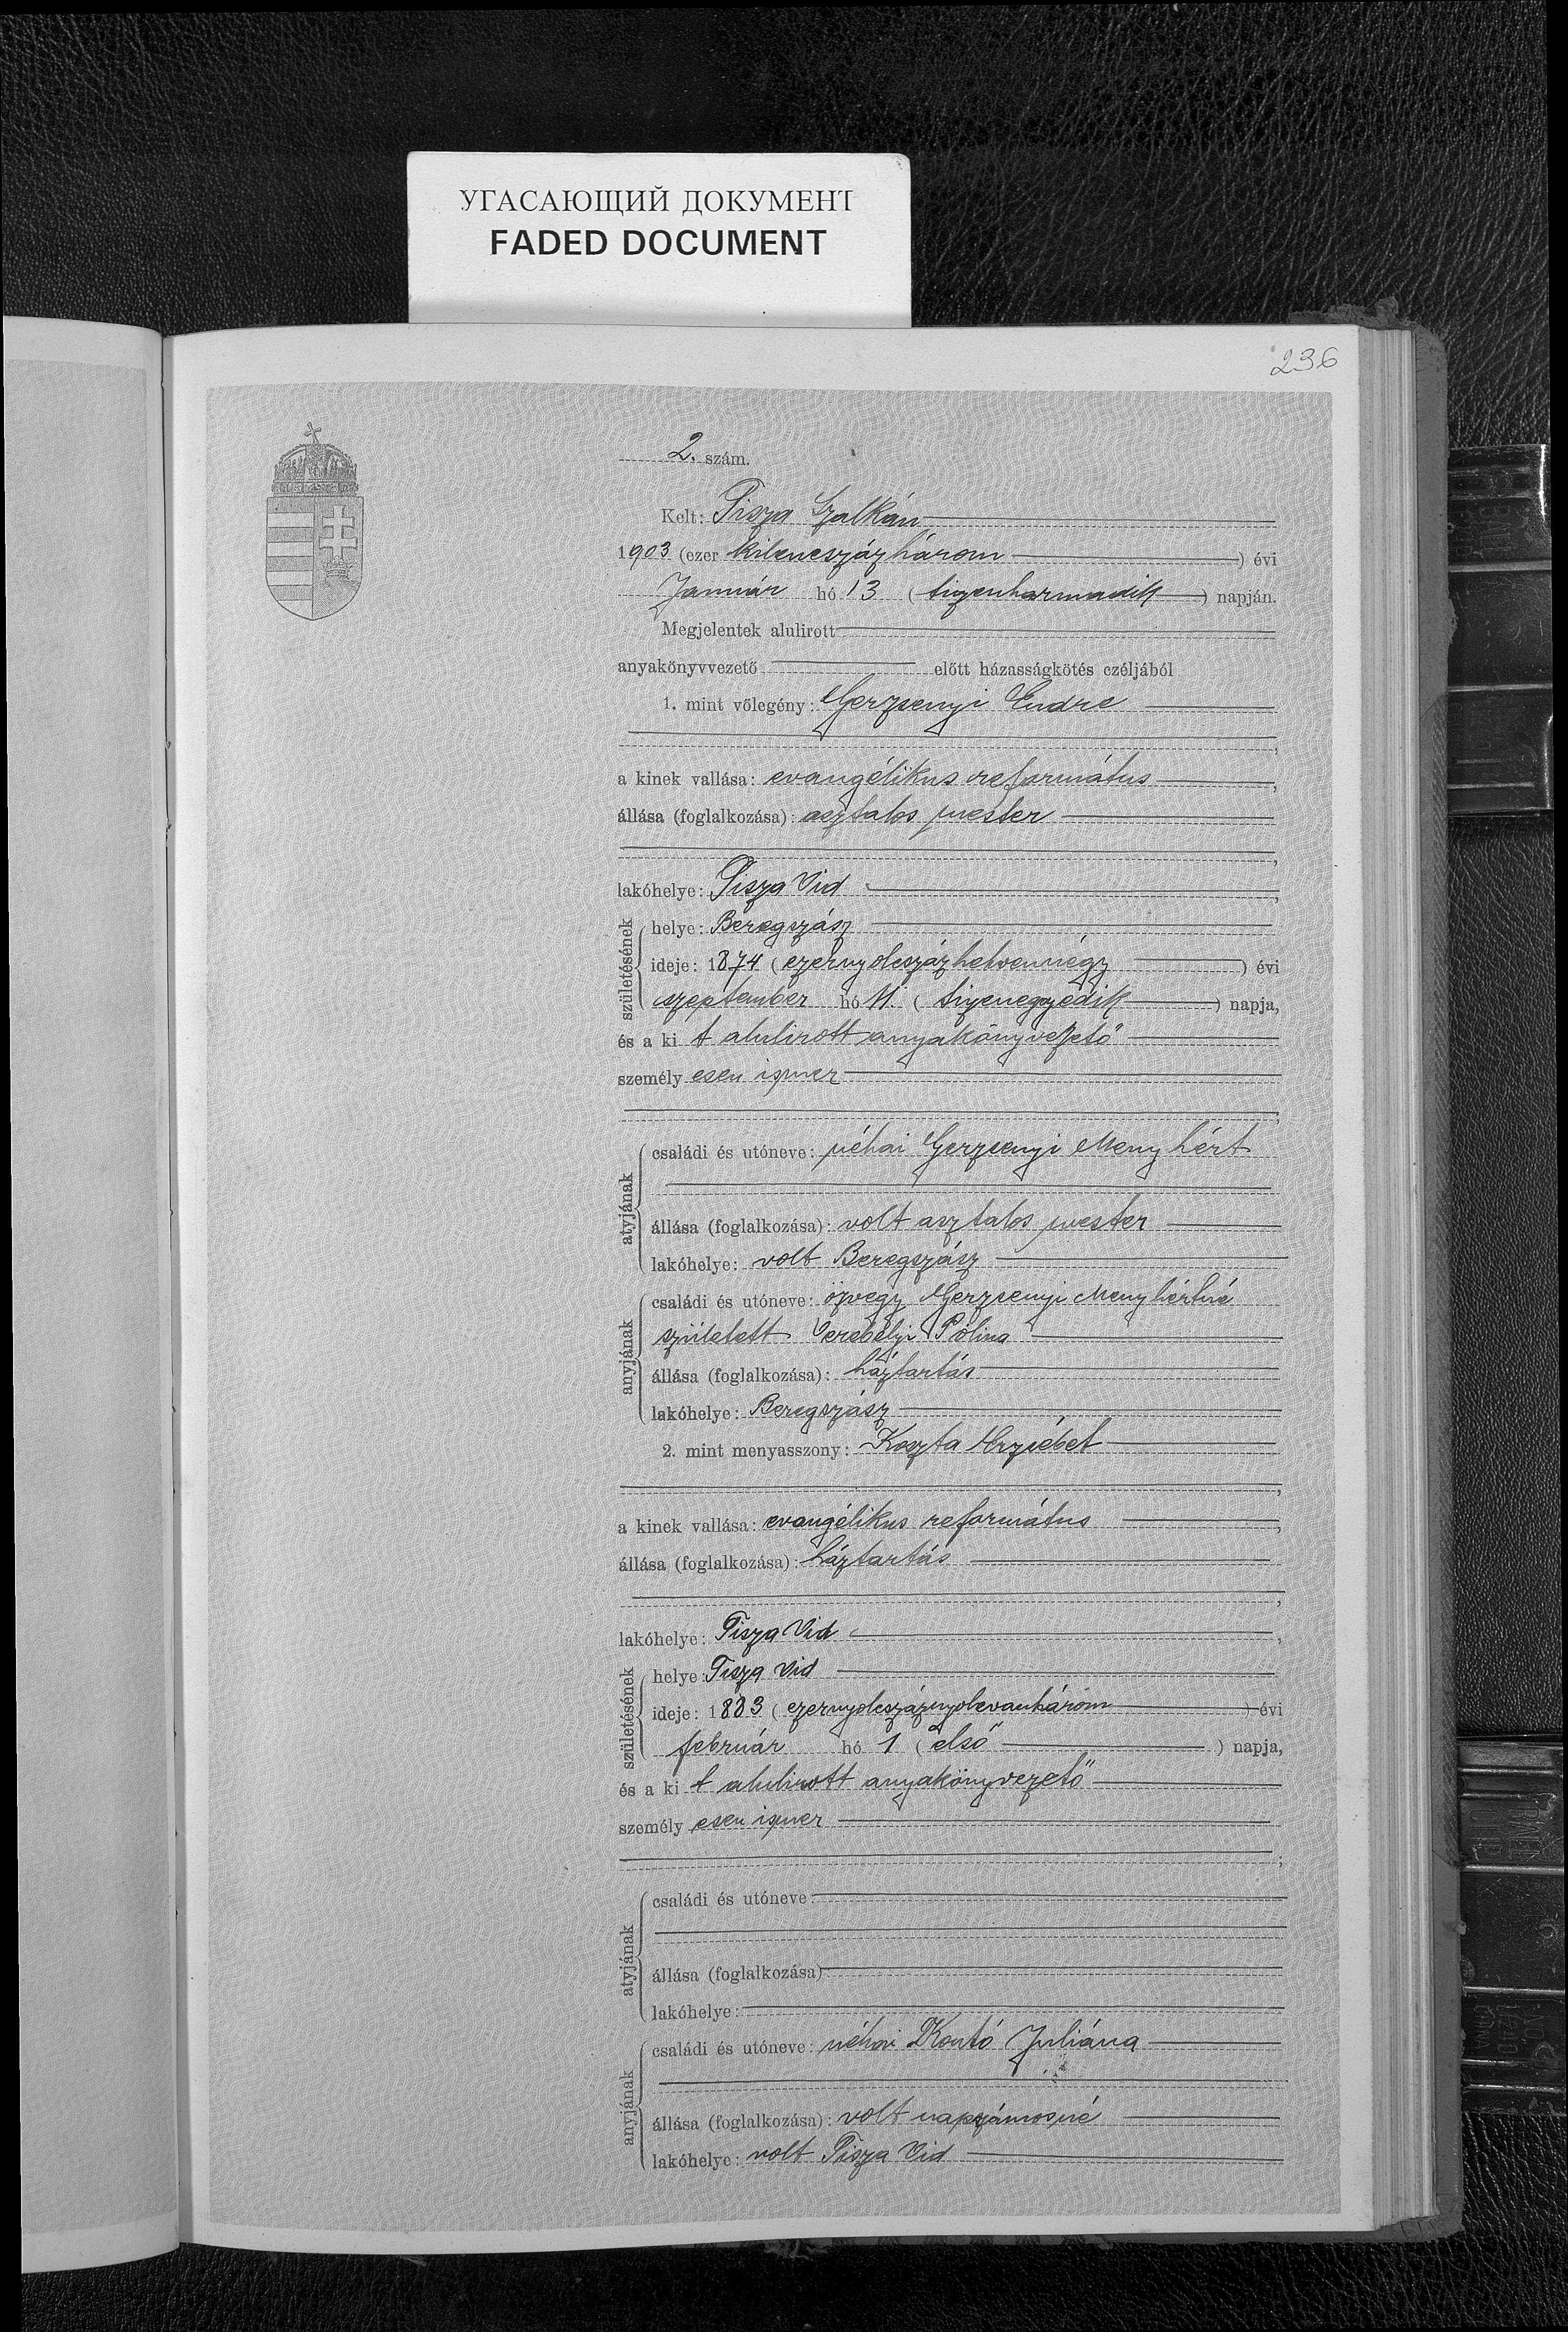 УГАСАЮЩИЙ ДОКУМЕНТ
FADED DOCUMENT
236
2. szám.
Kelt: Tisza Szalkán
1903 (ezer kilenczszázhárom) évi
Január hó 13 (tizenharmadik) napján.
Megjelentek alulirott
anyakönyvvezető előtt házasságkötés czéljából
1. mint vőlegény: Gerzsenyi Endre
a kinek vallása: evangélikus református,
állása (foglalkozása): asztalos mester
lakóhelye: Tisza Vid
születésének
helye: Beregszász
ideje: 1874 (ezernyolcszázhetvennégy) évi
szeptember hó 11. (tizenegyedik) napja,
és a ki t alulirott anyakönyvezető
személy esen ismer
atyjának
családi és utóneve: néhai Gerzsenyi Menyhért
állása (foglalkozása): volt asztalos mester
lakóhelye: volt Beregszász
anyjának
családi és utóneve: özvegy Gerzsenyi Menyhértné
született Verebélyi Pólina
állása (foglalkozása): háztartás
lakóhelye: Beregszász
2. mint menyasszony: Koszta Erzsébet
a kinek vallása: evangélikus református,
állása (foglalkozása): háztartás
lakóhelye: Tisza Vid
születésének
helye: Tisza Vid
ideje: 1883 (ezernyolcszáznyolcvanhárom) évi
február hó 1 (első) napja,
és a ki t alulirott anyakönyvezető
személy esen ismer
atyjának
családi és utóneve:
állása (foglalkozása)
lakóhelye:
anyjának
családi és utóneve: néhai Juliána
állása (foglalkozása): volt napszámosné
lakóhelye: volt Tisza Vid